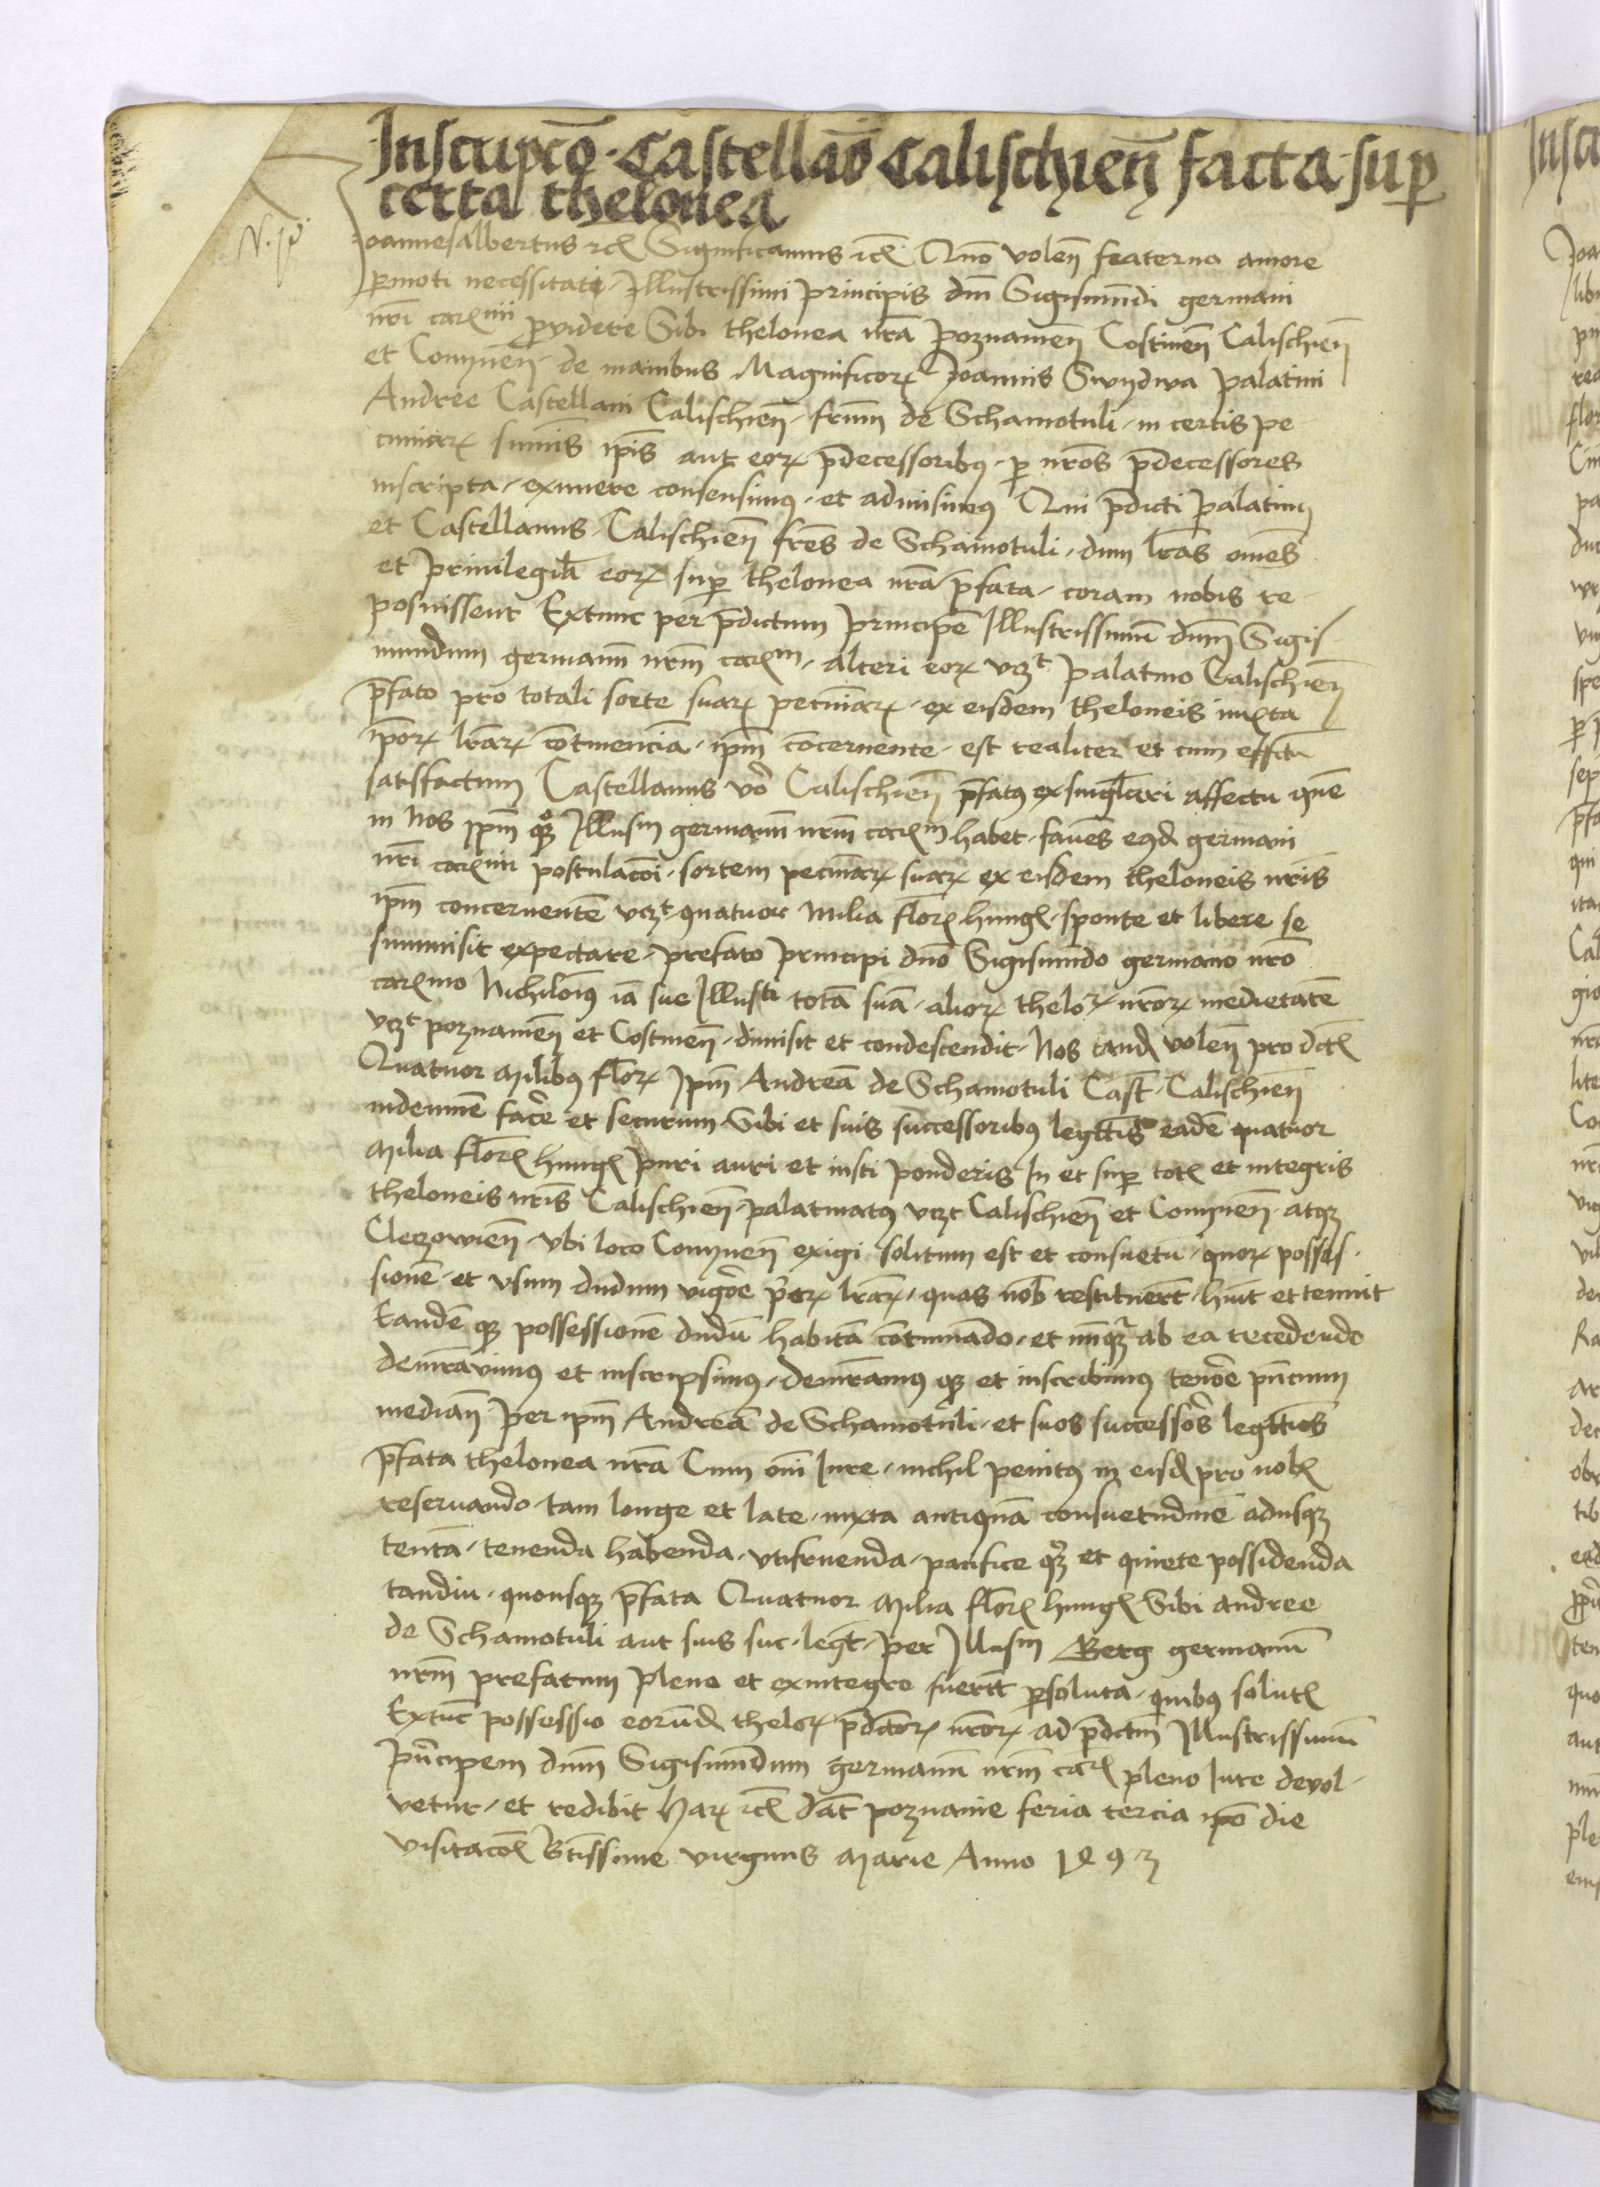 Inscripcō Castellāo Calischieñ facta sup
certa thelonea
Joannes albertus rcꝭ Significamus rcꝭ Quō voleñ fraterno amore
ꝑmoti necessitate Illustrissimi principis dm̄ Sigismūdi germani
nrī carꝭmi ꝓvidere Sibi thelonea nrā poznanieñ Costineñ Calischieñ
et Conyneñ de manibus Magnificorꝝ Joannis Swydwa palatini
Andree Castellani Calischieñ frūm de Schamotuli in certis pe
cuniarꝝ sum̄is ip̄is aut eorꝝ p̄decessoribꝰ ꝑ nrōs p̄decessores
inscripta exiūere consensimꝰ et admisimꝰ Qui p̄dicti palatinꝰ
et Castellanus Calischieñ frēs de Schamotuli dum lrās om̄es
et privilegia eorꝝ suꝑ thelonea nrā p̄fata coram nobis re
posuissent Extunc per p̄dictum principē Illustrissimū dnm̄ Sigis
mundum germanū nrm̄ carꝭm alteri eorꝝ vꝫt palatino Calischieñ
p̄fato pro totali sorte suarꝝ pecuniarꝝ ex eisdem theloneis iuxta
ip̄orꝝ lrārꝝ cōtinenciā ip̄m concernente est realiter et cum effctu
satisfactum Castellanus vō Calischieñ p̄fatꝰ ex singlari affectu quē
in Nos ip̄m qꝫ Illusm germanū nrm̄ carꝭm habet favēs eiꝰd germani
nrī carꝭmi postulacōi sortem pecuniarꝝ suarꝝ ex eisdem theloneis nrīs
ip̄m concernentē vꝫt quatuor Milia florꝭ hungꝭ sponte et libere se
summisit expectare prefato principi dnō Sigismūdo germano nrō
carꝭmo Nichilomꝰ iā sue Illusti totā suā aliorꝝ thelorꝝ nrōrꝝ medietatē
vꝫt poznanieñ et Costineñ dimisit et condescendit Nos tandē voleñ pro dctꝭ
Quatuor Milibꝰ florꝝ ip̄m Andreā de Schamotuli Cast Calischieñ
indemnē facere et securum Sibi et suis successoribꝰ legittīs eadē quatuor
Milia florꝭ hungꝭ puri auri et iusti ponderis In et suꝑ totꝭ et integris
theloneis nrīs Calischieñ palatinatꝰ vꝫt Calischieñ et Conyneñ atqꝫ
Cleczowieñ vbi loco Conyneñ exigi solitum est et consuetū quorꝝ posses
sionē et vsum dudum vigōre p̄orꝝ lrārꝝ quas nob̄ restituert hūit et tenuit
Eandē qꝫ possessionē dudū habitā cōtinuādo et nūqꝫ ab ea recedendo
demrāvimus et inscripsimꝰ demrāmꝰ qꝫ et inscribimꝰ tenōre pn̄cium
medianñ per ip̄m Andreā de Schamotuli et suos successōrs legttīos
p̄fata thelonea nrā Cum om̄i Iure nichil penitꝰ in eisdꝭ pro nobꝭ
reservando tam longe et late iuxta antiquā consuetudinē adusqꝫ
tentā tenenda habenda vtifruenda pacifice qꝫ et quiete possidenda
tandiu quousqꝫ p̄fata Quatuor Milia florꝭ hungꝭ Sibi andree
de Schamotuli aut suis suc legt per Illusm germanū
nrm̄ prefatum plene et exintegro fuerīt ꝑsoluta quibꝰ solutꝭ
Extūc possessio eorūdē thelorꝝ p̄dctorꝝ nrōrꝝ ad p̄dctm̄ Illustrissimū
prīcipem dnm̄ Sigismūdum germanū nrm̄ carꝭ pleno Iure devol
vetur et redibit harꝝ rcꝭ dat poznanie feria tercia ip̄o die
visitacōīs btīssime virginis Marie Anno 1493